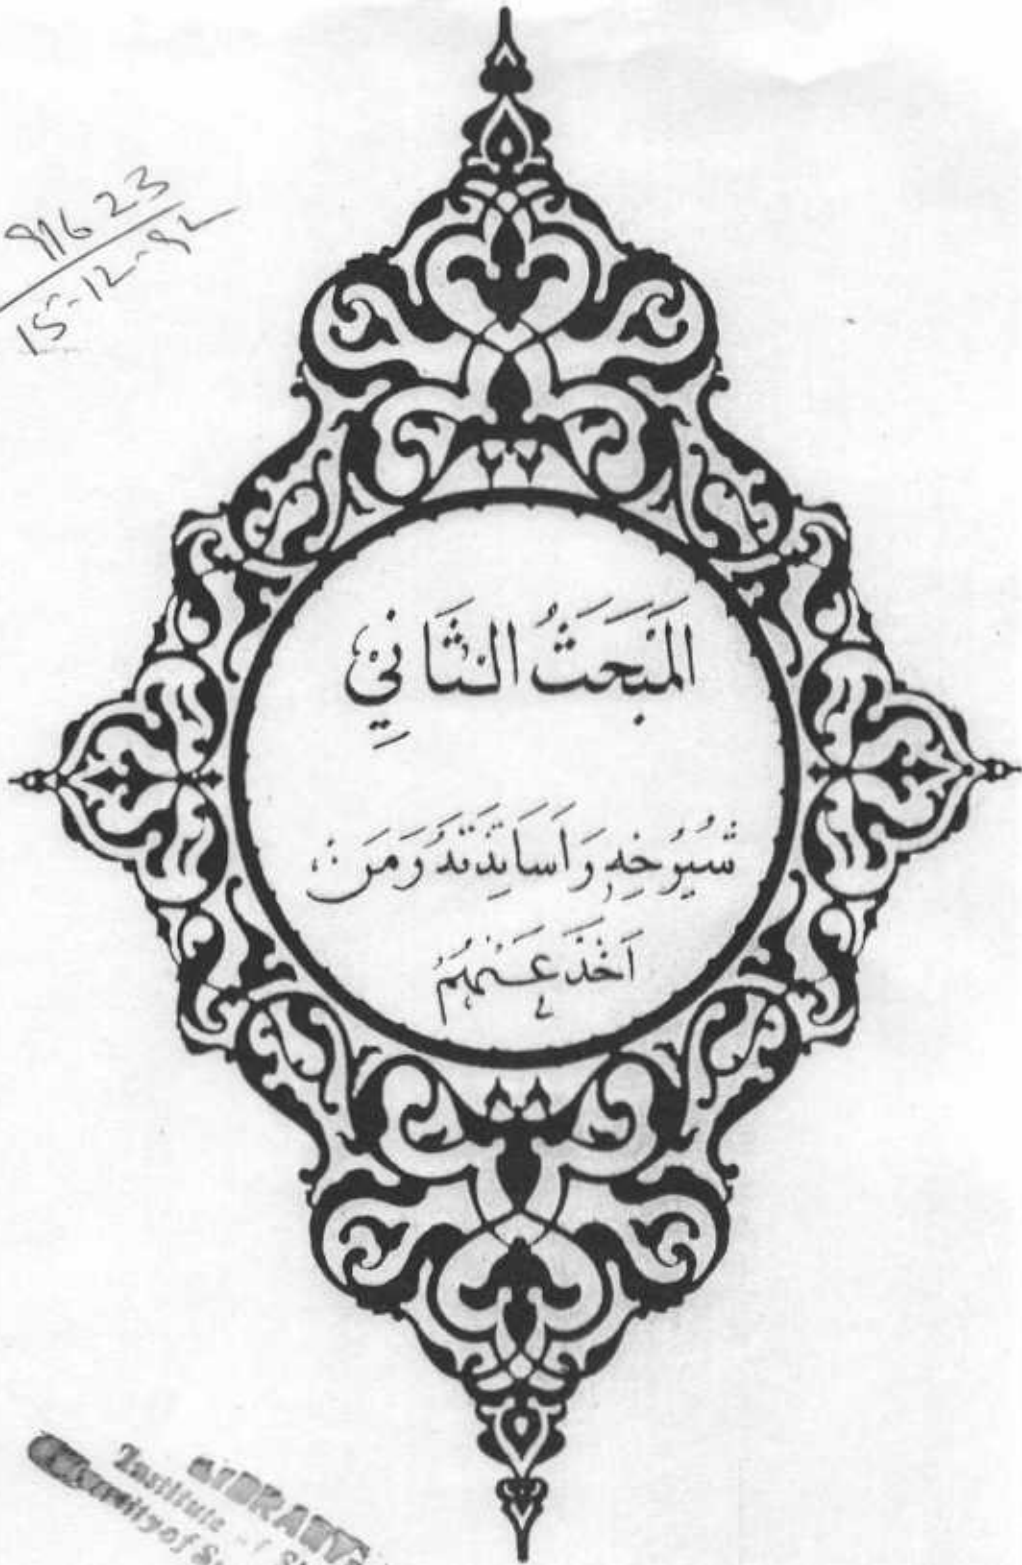 91623
15-12-92
المَبحَثُ الثَّانِي
شُيُوخِهِ وَأَسَاتِذَتَهُ وَمَن
أَخَذَ عَنهُم
LIBRARY
Institute of
University of